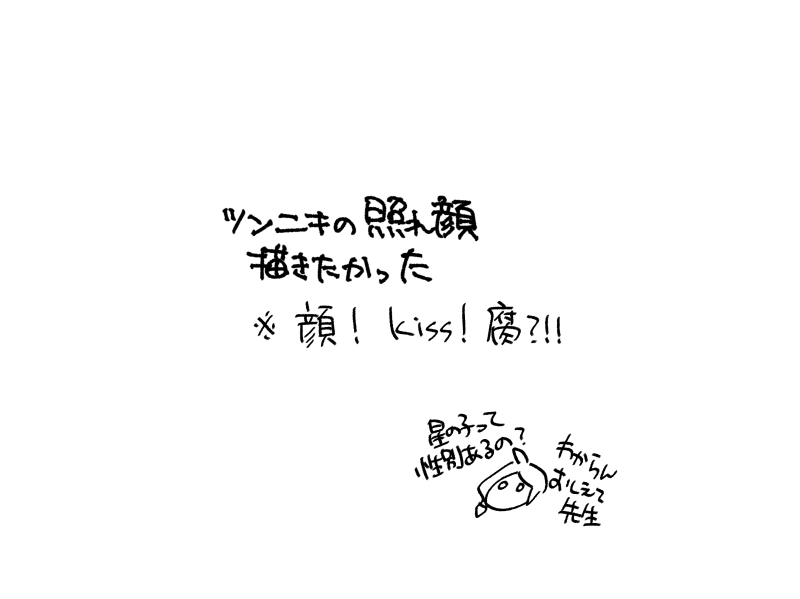 ツンニキの照れ顔
描きたかった
※ 顔! kiss! 腐?!!
星の子って
性別あるの?
わからん
おしえて
先生